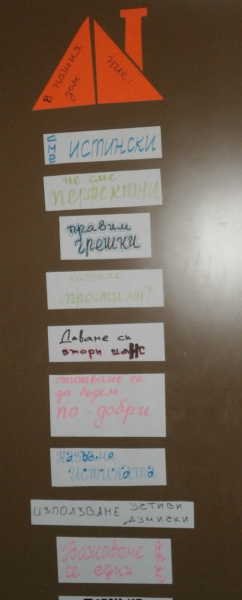 В нашия
дом
ние:
сме
истински
не сме
перфектни
правим
грешки
казваме
„прости ми"
Даване си
втори шанс
опитваме се
да бъдем
по-добри
казваме
истината
използваме
Уважаваме
се един